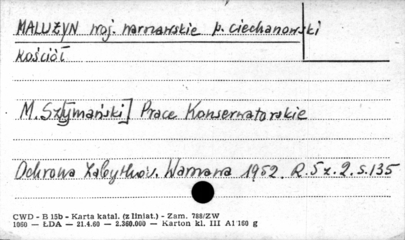 MALUŻYN woj. warszawskie p. ciechanowski
Kościół
M. Szymański] Prace Konserwatorskie
Ochrona Zabytków. Warszawa 1952. R. 5 z. 2. s. 135
CWD - B 15b - Karta katal. (z liniat.) - Zam. 788/ZW
1060 — ŁDA — 21.4.60 — 2.360.000 — Karton kl. III A1 160 g